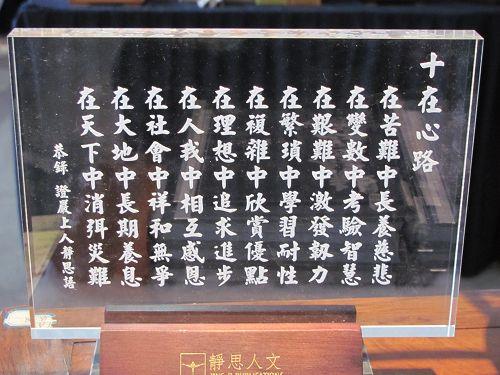 十在心路
在苦難中長養慈悲
在變數中考驗智慧
在艱難中激發韌力
在繁瑣中學習耐性
在複雜中欣賞優點
在理想中追求進步
在人我中相互感恩
在社會中祥和無爭
在大地中長期養息
在天下中消弭災難
恭錄 證嚴上人靜思語
靜思人文